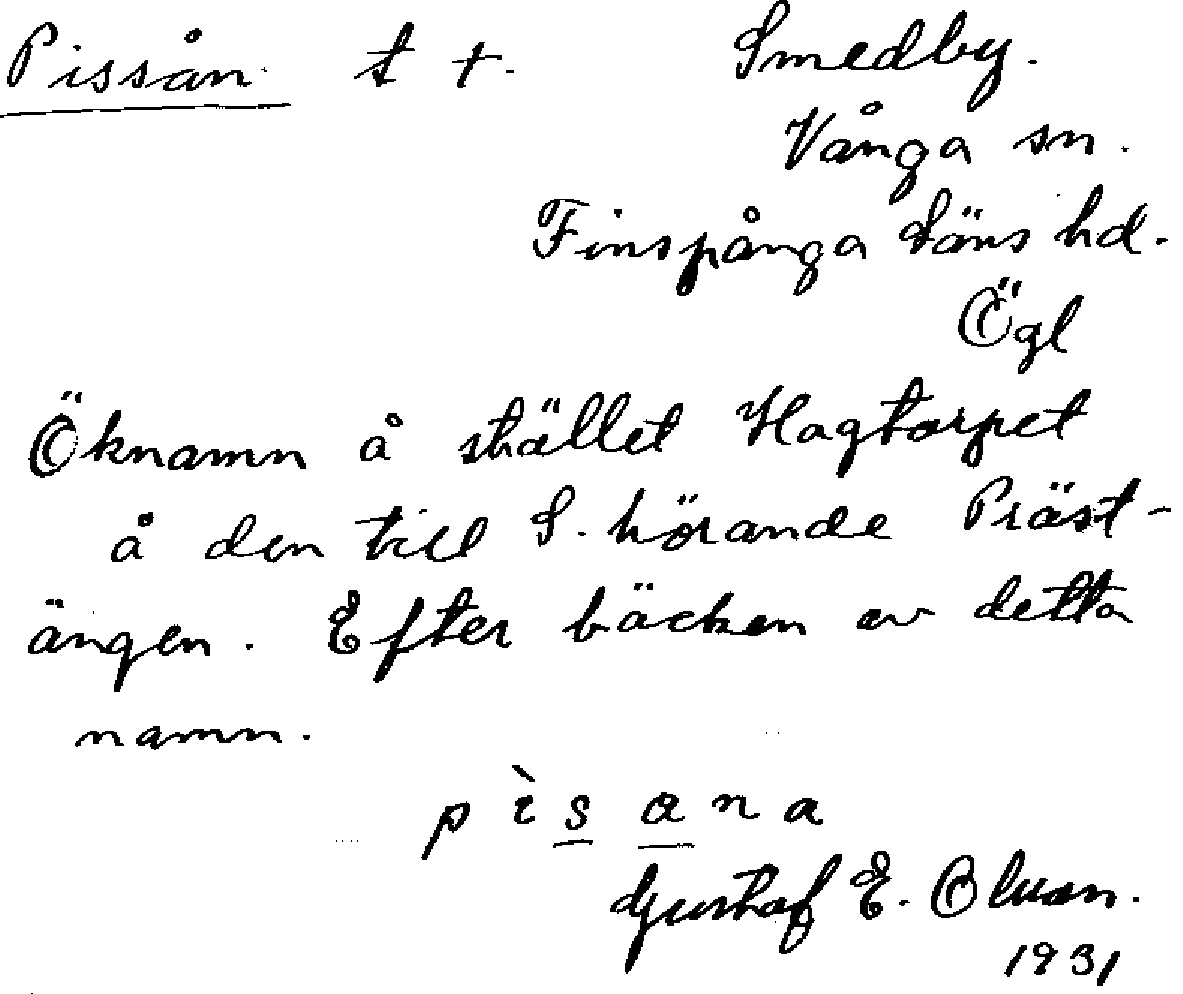 Pissån t +. Smedby.
Vånga sn.
Finspånga läns hd.
Ögl
Öknamn å stället Hagtorpet
å den till S. hörande Präst-
ängen. Efter bäcken av detta
namn.
pìsana
Gustaf E. Olsson.
1931